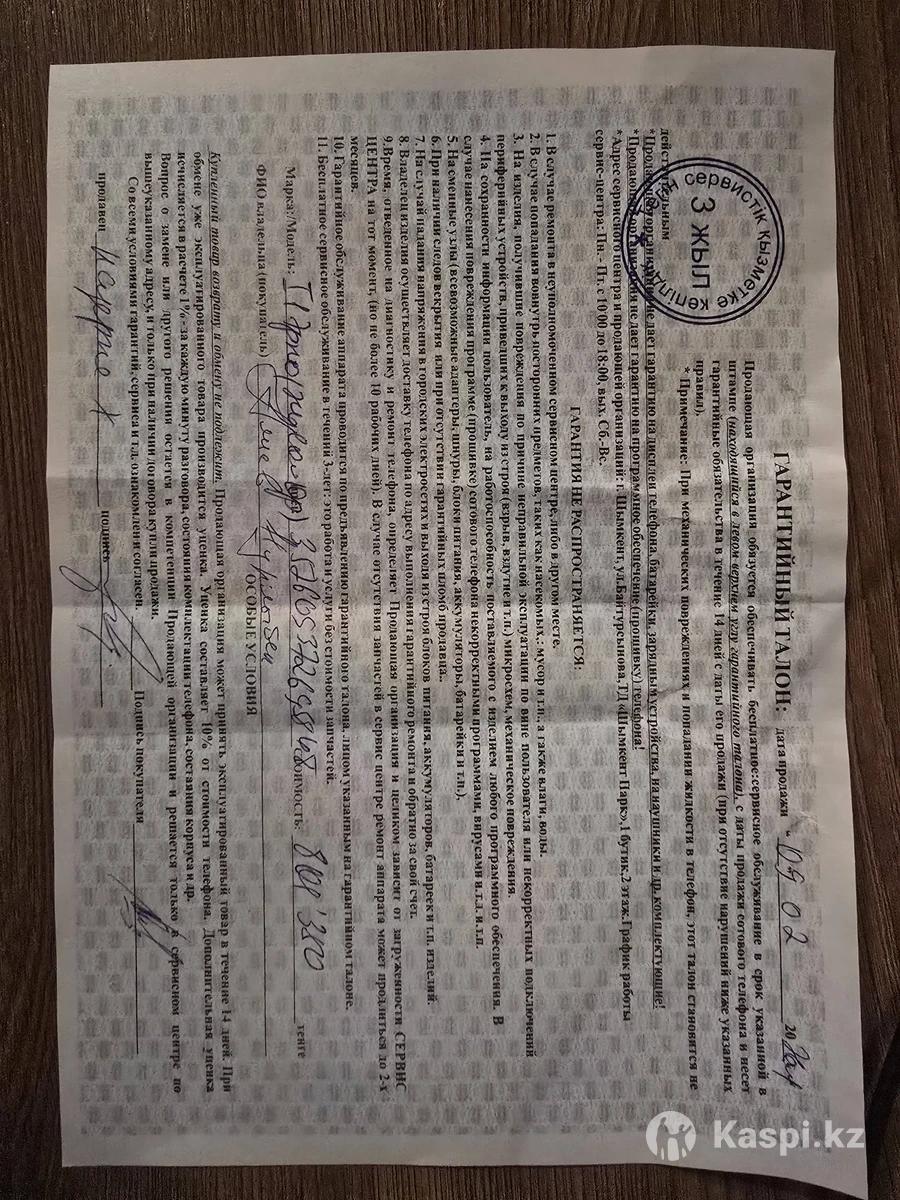 ТЕГІН сервистік Қызметке кепілдік
3 ЖЫЛ
ГАРАНТИЙНЫЙ ТАЛОН: дата продажи " 09 02 20
Продающая организация обязуется обеспечивать бесплатное:сервисное обслуживание в срок указанной в
штампе (находящийся в левом верхнем углу гарантийного талона), с даты продажи сотового телефона и несет
гарантийные обязательства в течение 14 дней с даты его продажи (при отсутствие нарушений ниже указанных
правил),
* Примечание: При механических повреждениях и попадании жидкости в телефон, этот талон становится не
действительным
*Продающая организация не дает гарантию на дисплей телефона, батарейки, зарядным устройства, на наушники и др.комплектующие!
*Продающая организация не дает гарантию на программное обеспечение (прошивку) телефона!
*Адрес сервисного центра и продающей организаций: г. Шымкент, ул.Байтурсынова,ТД «Шымкент Парк»,1 бутик,2 этаж.График работы
сервис-центра: Пн.- Пт. с 10:00 до 18:00, вых. Сб.-Вс.
ГАРАНТИЯ НЕ РАСПРОСТРАНЯЕТСЯ:
1. В случае ремонта в неуполномоченном сервисном центре,либо в другом месте.
2. В случае попадания вовнутрь посторонних предметов, таких как насекомых,: мусор и т.п., а также влаги, воды.
3. На изделия, получившие повреждения по причине неправильной эксплуатации по вине пользователя или некорректных подключений
периферийных устройств, приведших к выходу из строя (взрыв, вздутие и т.п.) микросхем, механическое повреждения.
4. На сохранности информации пользователь, на работоспособность поставляемого с изделием любого программного обеспечения. В
случае нанесения повреждения программе (прошивке) сотового телефона некорректными программами, вирусами и.т.д. и.т.п.
5. На сменные узлы (всевозможные адаптеры, шнуры, блоки питания, аккумуляторы, батарейки и т.п.).
6. При наличии следов вскрытия или при отсутствии гарантийных пломб продавца..
7. На случай падания напряжения в городских электросетях и выходя из строя блоков питания, аккумуляторов, батареек и т.п. изделий.
8. Владелец изделия осуществляет доставку телефона по адресу выполнения гарантийного ремонта и обратно за свой счет.
9.Время, отведенное на диагностику и ремонт телефона, определяет Продающая организация и целиком зависит от загруженности СЕРВИС
ЦЕНТРА на тот момент, (но не более 10 рабочих дней). В случае отсутствия запчастей в сервис центре ремонт аппарата может продлиться до 2-х
месяцев.
10. Гарантийное обслуживание аппарата проводится по предъявлению гарантийного талона, лицом указанным на гарантийном талоне.
11. Бесплатное сервисное обслуживание в течений 3-лет: это работа и услуги без стоимости запчастей.
Марка:/Модель: стоимость: тенге
ФИО владельца (покупатель)
ОСОБЫЕ УСЛОВИЯ
Купленный товар возврату и обмену не подлежит. Продающая организация может принять эксплуатированный товар в течение 14 дней. При
обмене уже эксплуатированного товара производится уценка. Уценка составляет 10% от стоимости телефона. Дополнительная уценка
исчисляется в расчете 1%-за каждую минуту разговора, состояния комплектации телефона, состаяния корпуса и др.
Вопрос о замене или другого решения остается в компетенции Продающей организации и решается только в сервисном центре по
вышеуказанному адресу, и только при наличии договора купли продажи.
Со всеми условиями гарантий, сервиса и т.д. ознакомлен и согласен.
продавец подпись Подпись покупателя
Kaspi.kz